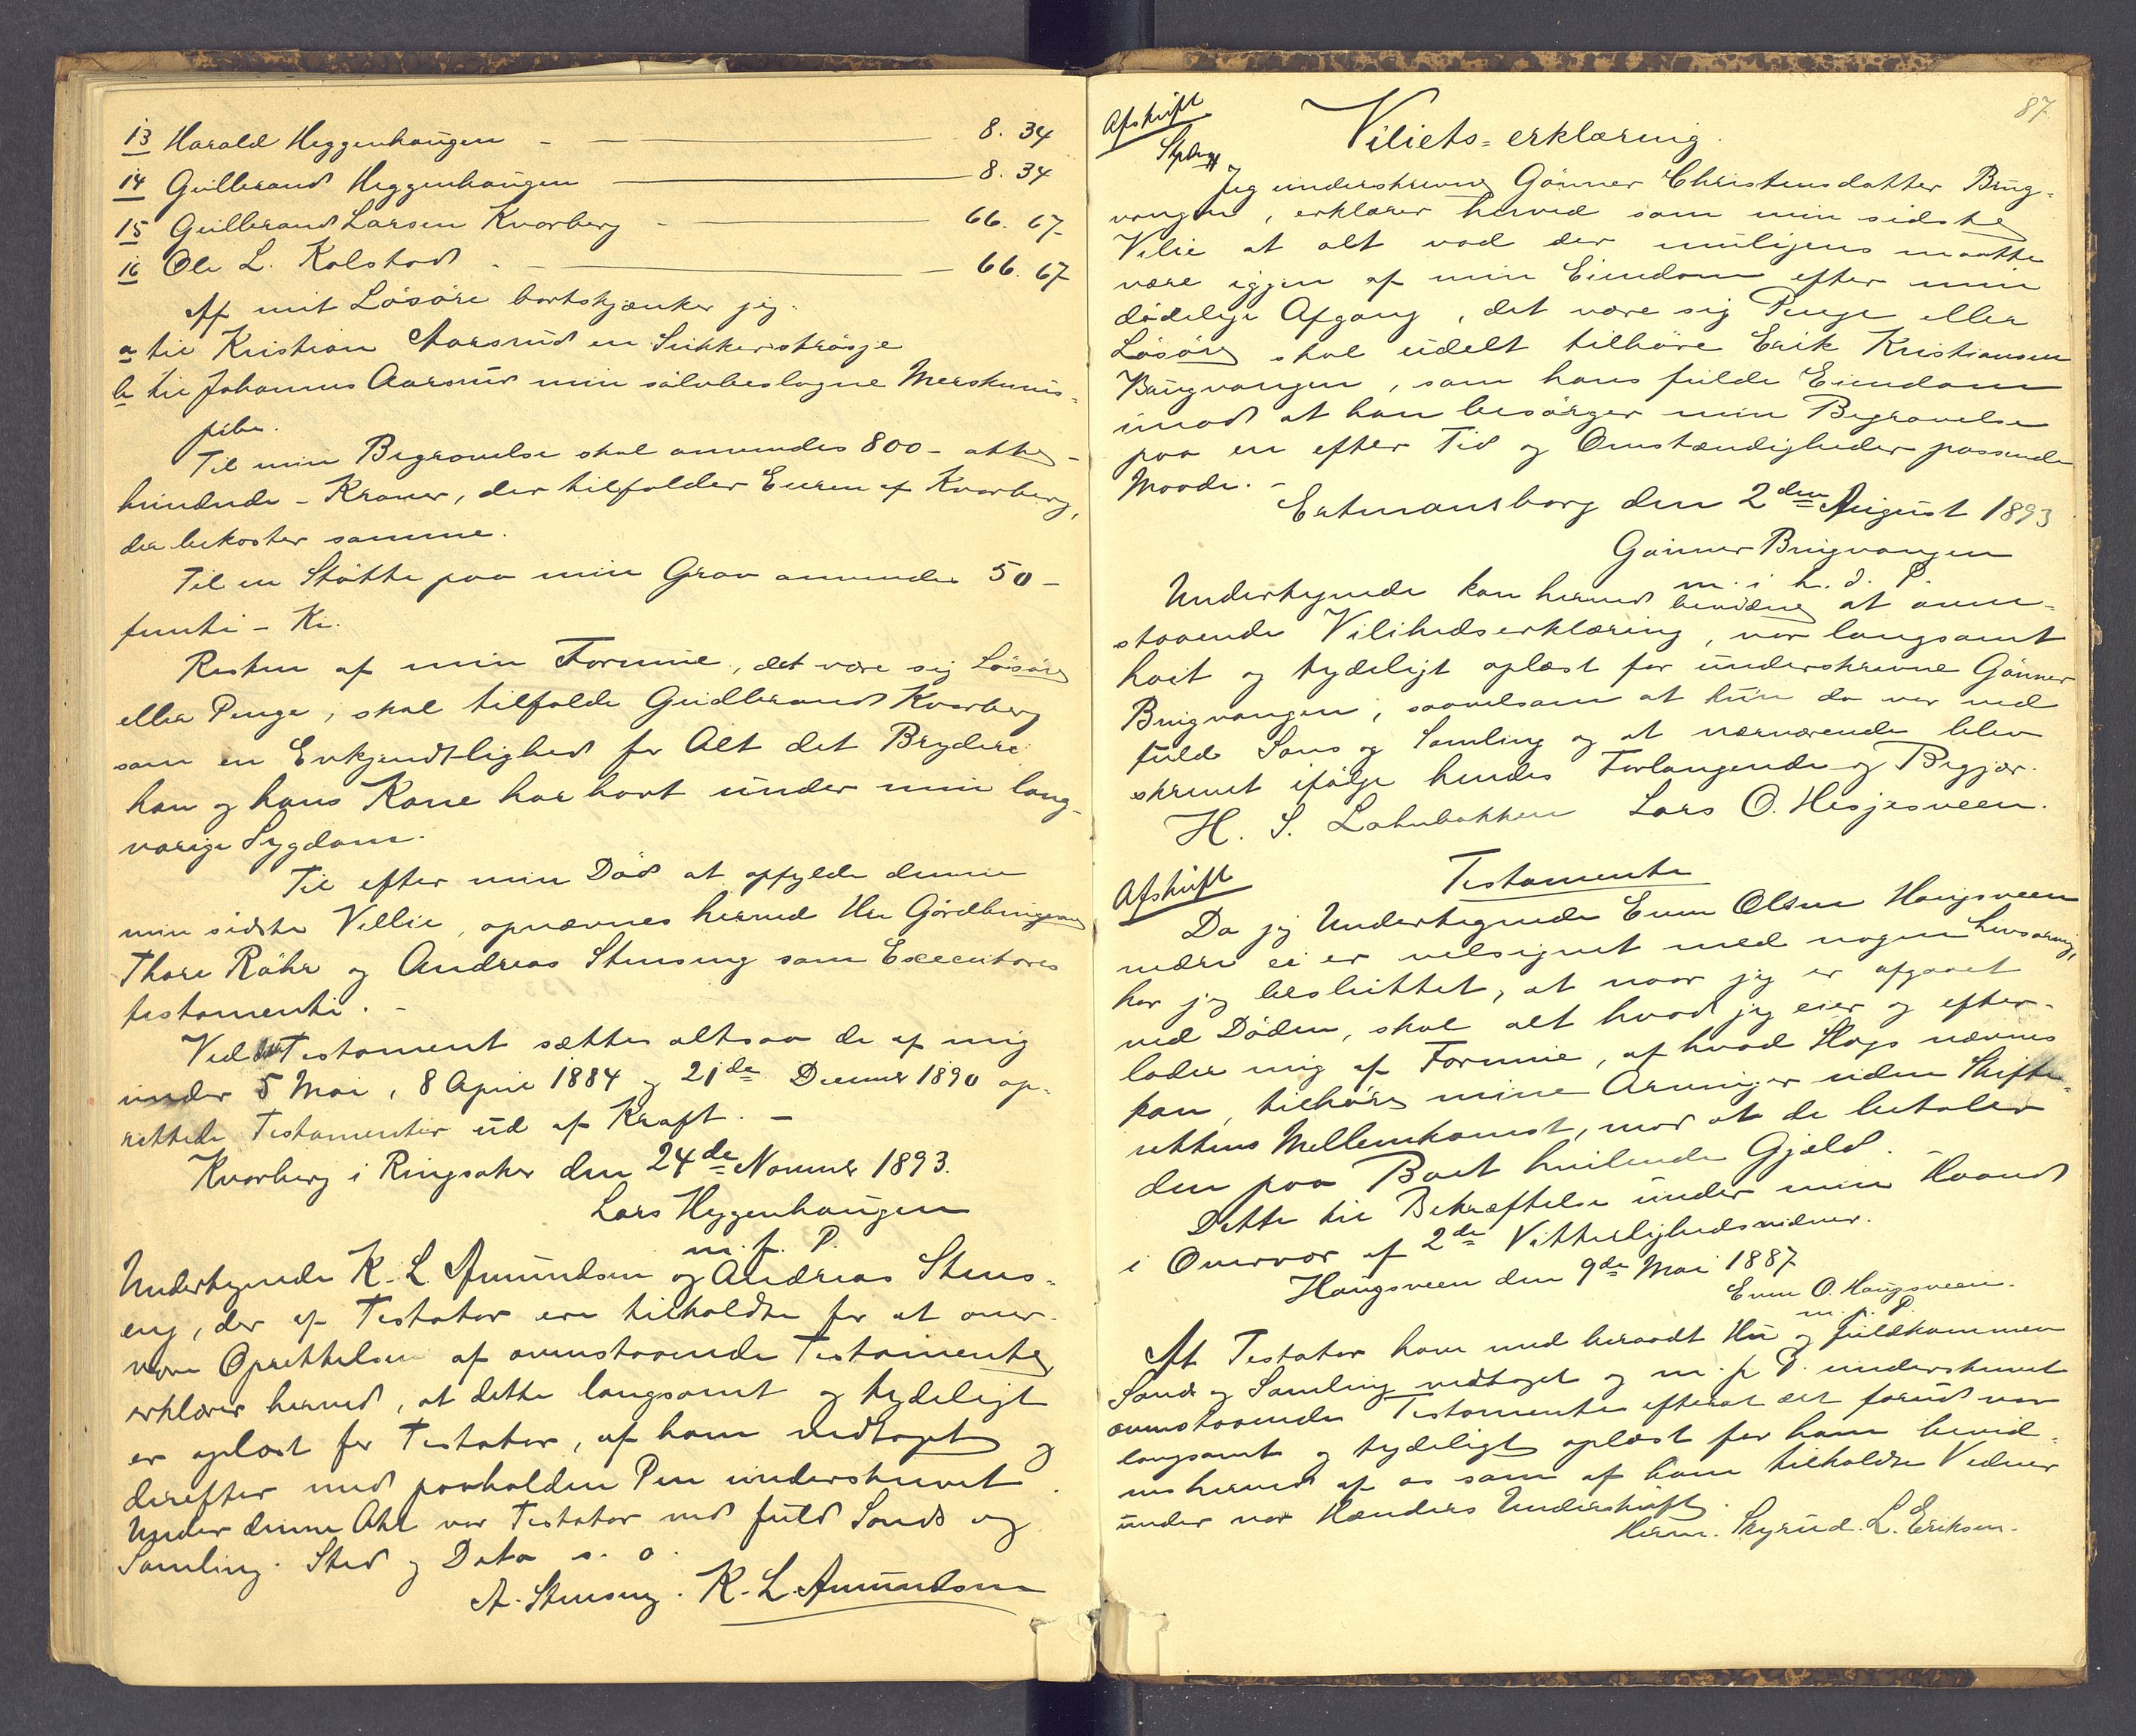 13 Harald Heggenhaugen - 8. 34
14 Gulbrand Heggenhaugen 8. 34
15 Gulbrand Larsen Kvarberg - 66. 67
16 Ole L. Kolstad - 66. 67
Af mit Løsøre bortskjænker jeg.
a til Kristian Aarsrud en Sukkerstrøsje
b til Johannes Aarsrud min sølvbeslagne Merskums-
pibe.
Til min Begravelse skal anvendes 800 - otte
hundrede - Kroner, der tilfalder Eieren af Kvarberg,
der bekoster samme.
Til en Støtte paa min Grav anvendes 50 -
femti - Kr.
Resten af min Formue, det være sig Løsøre
eller Penge, skal tilfalde Gudbrand Kvarberg
som en Erkjendtlighed for Alt det Bryderi
han og hans Kone har havt under min lang-
varige Sygdom.
Til efter min Død at opfylde denne
min sidste Villie, opnævnes herved Hr
Thore Røhr og Andreas Stenseng som Executores
testamenti. -
Ved Testament sættes altsaa de af mig
under 5 Mai, 8 April 1884 og 21de Decembr 1890 op-
rettede Testamenter ud af Kraft. -
Kvarberg i Ringsaker den 24de Novembr 1893.
Lars Heggenhaugen
m. p. P.
Undertegnede K. L. Amundsen og Andreas Stens-
eng, der af Testator ere tilkaldte for at over-
være Oprettelsen af ovenstaaende Testamente
erklærer herved, at dette langsomt og tydeligt
er oplæst for Testator, af ham vedtaget og
derefter med paaholden Pen underskrevet.
Under denne Akt var Testator ved fuld Sands og
Samling. Sted og Dato s. o.
A. Stenseng. K. L. Amundsen
87
Afskrift
Viliets-erklæring.
Jeg underskrevne Gønner Christensdatter Brug-
vangen, erklærer herved som min sidste
Vilie at alt vad der muligens maatte
være iggjen af min Eiendom efter min
dødelige Afgang, det være sig Penge eller
Løsøre skal udelt tilhøre Erik Kristiansen
Bru​gvangen, som hans fulde Eiendom
imod at han besørger min Begravelse
paa en efter Tid og Omstændigheder passende
Maade. -
Ertmansborg den 2den August 1893
Gønner Brugvangen
m. i h. d. P.
Undertegnede kan herved bevidne at oven-
staaende Vilihedserklæring, var langsamt
høit og tydeligt oplæst for underskrevne Gønner
Brugvangen, saavelsom at hun da var ved
fuld Sans og Samling og at nærværende blev
skrevet ifølge hendes Forlangende og Begjær.
H. S. Lohnbakken Lars O. Hesjesveen.
Afskrift
Testamente
Da jeg Undertegnede Even Olsen Haugsveen
ei er velsignet med nogen Livsarving,
har jeg besluttet, at naar jeg er afgaaet
ved Døden, skal alt hvad jeg eier og efter-
lader mig af Formue, af hvad Slags nævnes
kan, tilhøre mine Arvinger uden Skifte-
rettens Mellemkomst, mod at de betaler
den paa Boet hvilende Gjæld. -
Dette til Bekræftelse under min Haand
i Overvær af 2de Vitterlighedsvidner.
Haugsveen den 9de Mai 1887
Even O. Haugsveen.
m. p. P.
At Testator have med beraadt Hu og fuldkommen
Sands og Samling vedtaget og m. p. P. underskrevet
ovenstaaende Testamente efterat det forud var
langsomt og tydeligt oplæst for ham bevid-
nes herved af os som af ham tilkaldte Vidner
under vor Hænders Underskrift.
Herm. Skyrud. L. Eriksen.